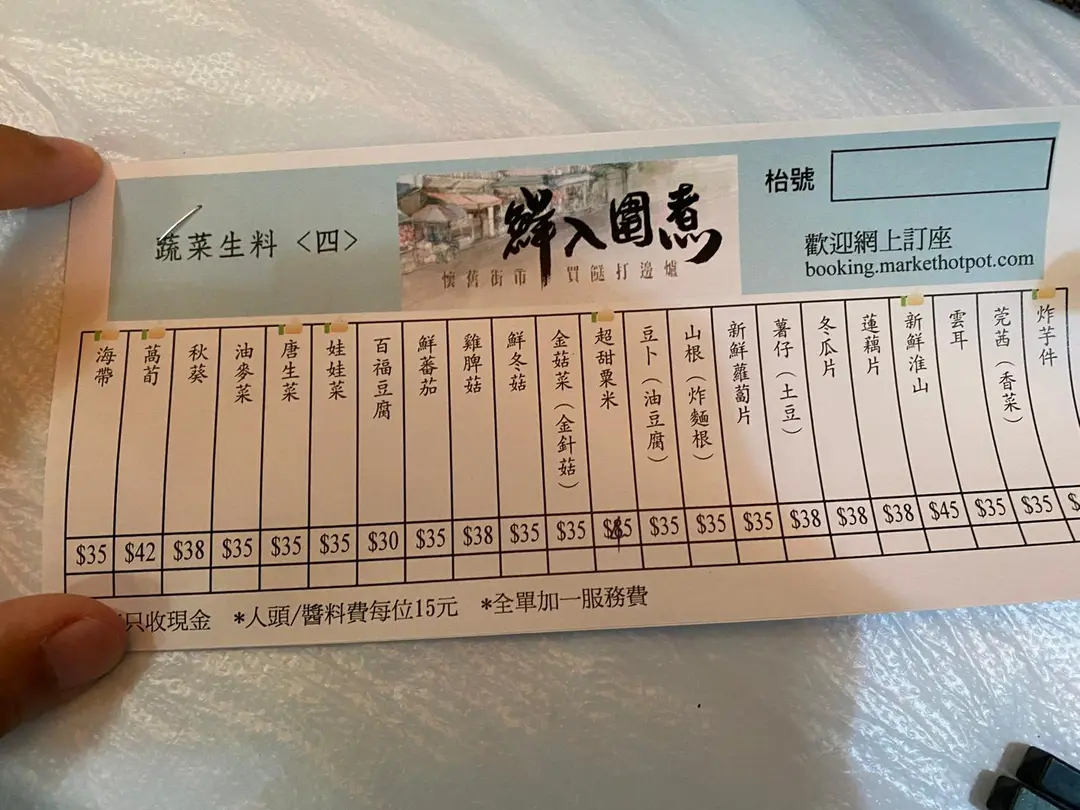 蔬菜生料〈四〉
鮮入圍煮
懷舊街市 買餸打邊爐
枱號
歡迎網上訂座
booking.markethotpot.com
海帶
萵荀
秋葵
油麥菜
唐生菜
娃娃菜
百福豆腐
鮮蕃茄
雞脾菇
鮮冬菇
金菇菜（金針菇）
超甜粟米
豆卜（油豆腐）
山根（炸麵根）
新鮮蘿蔔片
薯仔（土豆）
冬瓜片
蓮藕片
新鮮淮山
雲耳
芫茜（香菜）
炸芋件
$35 $42 $38 $35 $35 $35 $30 $35 $38 $35 $35 $35 $35 $35 $38 $38 $38 $45 $35 $35
只收現金 *人頭/醬料費每位15元 *全單加一服務費